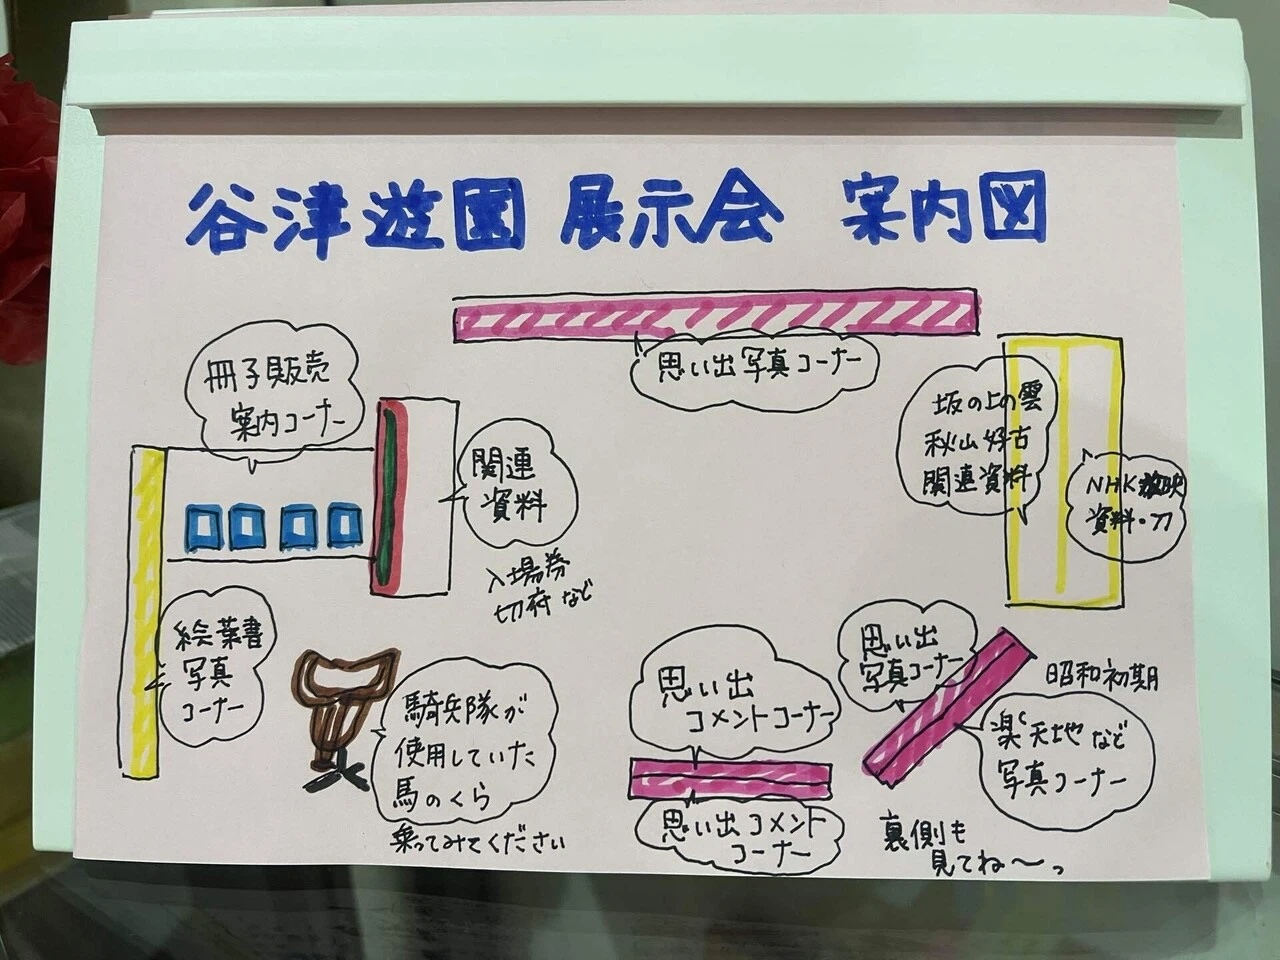 谷津遊園 展示会 案内図
思い出写真コーナー
冊子販売
案内コーナー
関連
資料
入場券
切府など
坂の上の雲
秋山好古
関連資料
NHK放映
資料・刀
絵葉書
写真
コーナー
騎兵隊が
使用していた
馬のくら
乗ってみてください
思い出
コメントコーナー
思い出コメント
コーナー
思い出
写真コーナー
昭和初期
楽天地など
写真コーナー
裏側も
見てね〜っ